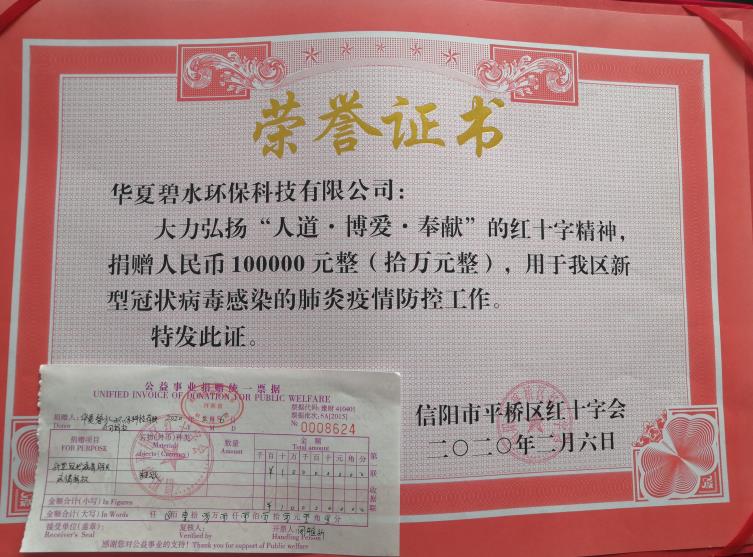 荣誉证书
华夏碧水环保科技有限公司：
大力弘扬“人道·博爱·奉献”的红十字精神，
捐赠人民币100000元整（拾万元整），用于我区新
型冠状病毒感染的肺炎疫情防控工作。
特发此证。
信阳市平桥区红十字会
二〇二〇年二月六日
公益事业捐赠统一票据
UNIFIED INVOICE OF DONATION FOR PUBLIC WELFARE
票据代码：豫财410401
票据批次：SA[2015]
捐赠人：华夏碧水环保科技有限公司 2020 年
Donor
№ 0008624
捐赠项目 实物(外币)种类 数量 金额
FOR PURPOSE Material objects(Currency) Amount Total amount
千百十万千百十元角分
¥10000000
金额合计(小写) In Figures ¥10000000
金额合计(大写) In Words 仟 佰 拾 万 仟 佰 拾 元 角 分
接受单位(盖章)： 复核人： 开票人：
Receiver's Seal Verified by Handling Person
感谢您对公益事业的支持！Thank you for support of Public welfare
第
联
收据联